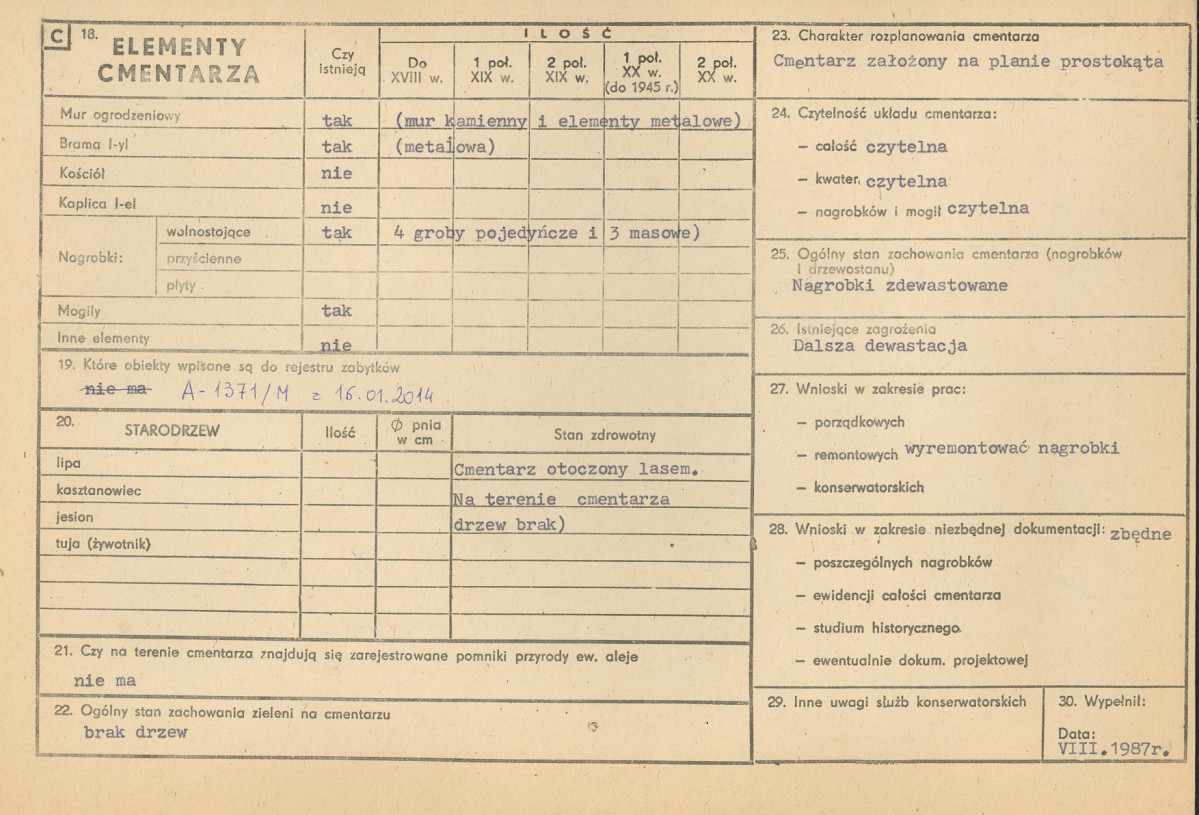 C 18. ELEMENTY CMENTARZA
Czy istnieją
ILOŚĆ
Do XVIII w.
1 poł. XIX w.
2 poł. XIX w.
1 poł. XX w. (do 1945 r.)
2 poł. XX w.
Mur ogrodzeniowy tak (mur kamienny i elementy metalowe)
Brama I-yl tak (metalowa)
Kościół nie
Kaplica I-el nie
Nagrobki:
wolnostojące tak 4 groby pojedyńcze i 3 masowe)
przyścienne
płyty
Mogiły tak
Inne elementy nie
19. Które obiekty wpisane są do rejestru zabytków
nie ma A-1371/M z 16.01.2014
20. STARODRZEW
Ilość
Ø pnia w cm
Stan zdrowotny
lipa
Cmentarz otoczony lasem.
kasztanowiec
Na terenie cmentarza
jesion
drzew brak)
tuja (żywotnik)
21. Czy na terenie cmentarza znajdują się zarejestrowane pomniki przyrody ew. aleje
nie ma
22. Ogólny stan zachowania zieleni na cmentarzu
brak drzew
23. Charakter rozplanowania cmentarza
Cmentarz założony na planie prostokąta
24. Czytelność układu cmentarza:
— całość czytelna
— kwater, czytelna
— nagrobków i mogił czytelna
25. Ogólny stan zachowania cmentarza (nagrobków
i drzewostanu)
Nagrobki zdewastowane
26. Istniejące zagrożenia
Dalsza dewastacja
27. Wnioski w zakresie prac:
— porządkowych
— remontowych wyremontować nagrobki
— konserwatorskich
28. Wnioski w zakresie niezbędnej dokumentacji: zbędne
— poszczególnych nagrobków
— ewidencji całości cmentarza
— studium historycznego.
— ewentualnie dokum. projektowej
29. Inne uwagi służb konserwatorskich
30. Wypełnił:
Data:
VIII.1987r.